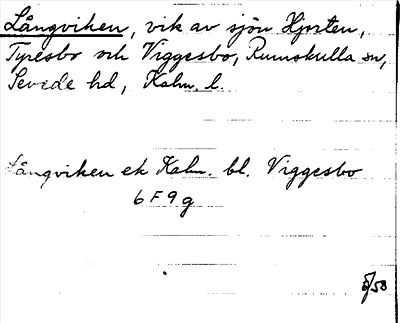 Långviken, vik av sjön Hjorten,
Tyresbo och Viggesbo, Rumskulla sn,
Sevede hd, Kalm. l.
Långviken ek Kalm. bl. Viggesbo
6 F 9 g
5/58